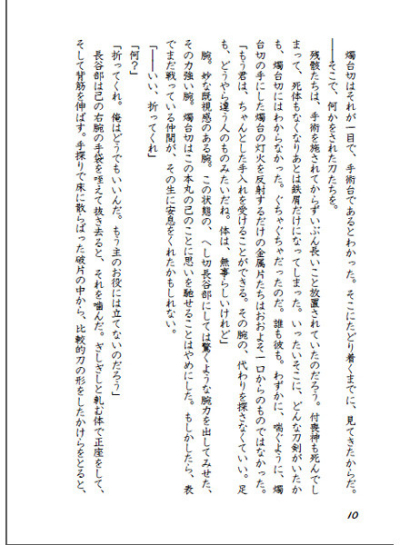 燭台切はそれが一目で、手術台であるとわかった。そこにたどり着くまでに、見てきたからだ。
――そこで、何かをされた刀たちを。
残骸たちは、手術を施されてからずいぶん長いこと放置されていたのだろう。付喪神も死んでし
まって、死体もなくなりあとは鉄屑だけになってしまった。いったいそこに、どんな刀剣がいたか
も、燭台切にはわからなかった。ぐちゃぐちゃだったのだ。誰も彼も。わずかに、喘ぐように、燭
台切の手にした燭台の灯火を反射するだけの金属片たちはおおよそ一口からのものではなかった。
「もう君は、ちゃんとした手入れを受けることができる。その腕の、代わりを探さなくていい。足
も、どうやら違う人のものみたいだね。体は、無事らしいけれど」
腕。妙な既視感のある腕。この状態の、へし切長谷部にしては驚くような腕力を出してみせた、
その力強い腕。燭台切はこの本丸の己のことに思いを馳せることはやめにした。もしかしたら、表
でまだ戦っている仲間が、その生に安息をくれたかもしれない。
「――いい、折ってくれ」
「何？」
「折ってくれ。俺はどうでもいいんだ。もう主のお役には立てないのだろう」
長谷部は己の右腕の手袋を咥えて抜き去ると、それを噛んだ。ぎしぎしと軋む体で正座をして、
そして背筋を伸ばす。手探りで床に散らばった破片の中から、比較的刀の形をしたかけらをとると、
10